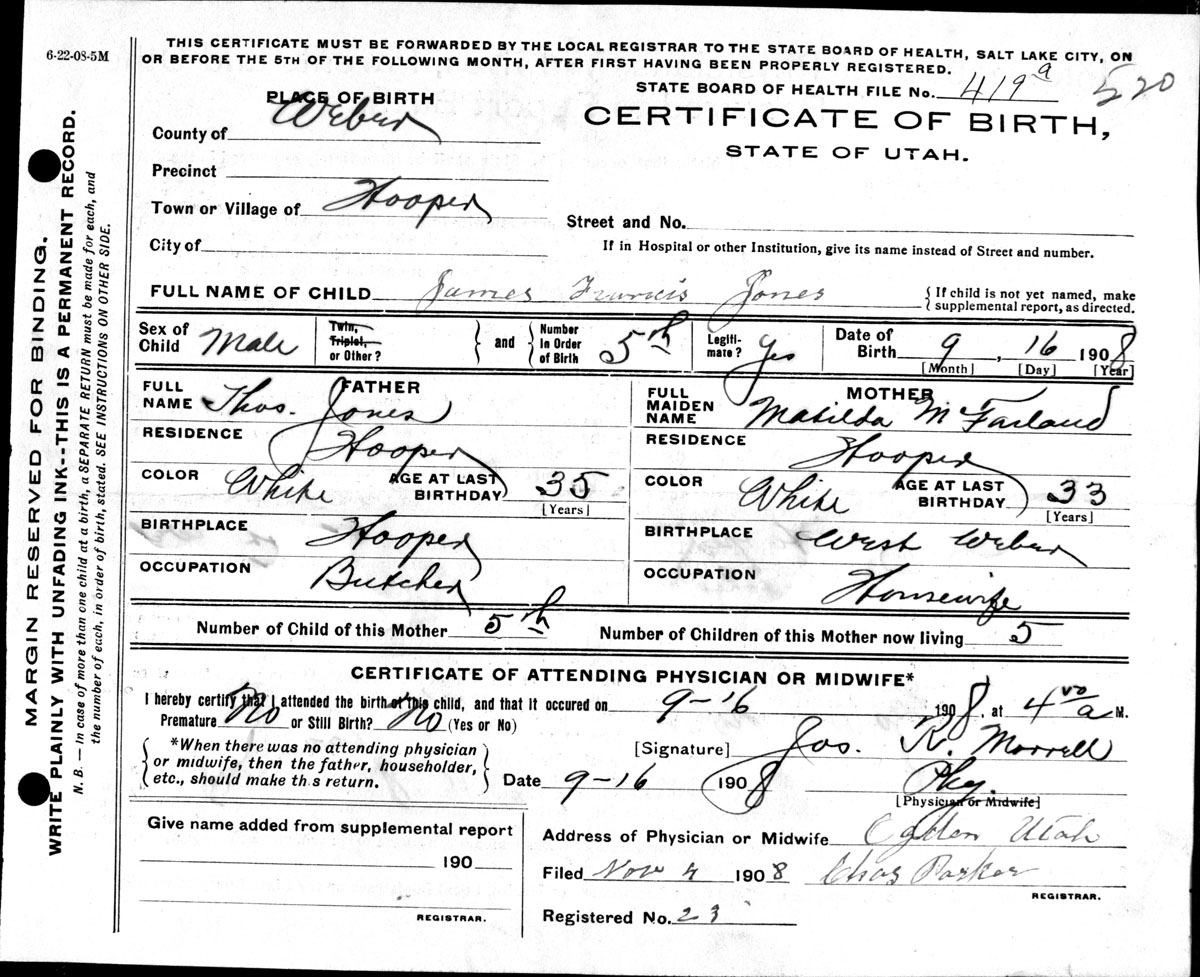 6-22-08-5M
THIS CERTIFICATE MUST BE FORWARDED BY THE LOCAL REGISTRAR TO THE STATE BOARD OF HEALTH, SALT LAKE CITY, ON
OR BEFORE THE 5TH OF THE FOLLOWING MONTH, AFTER FIRST HAVING BEEN PROPERLY REGISTERED.
STATE BOARD OF HEALTH FILE No. 419 a 520
PLACE OF BIRTH
CERTIFICATE OF BIRTH,
STATE OF UTAH.
County of Weber
Precinct
Town or Village of Hooper
Street and No.
City of
If in Hospital or other Institution, give its name instead of Street and number.
FULL NAME OF CHILD James Francis Jones { If child is not yet named, make
supplemental report, as directed.
Sex of Child Male
Twin, Triplet, or Other? } and { Number in Order of Birth 5th
Legiti- mate? Yes
Date of Birth 9, 16 1908
[Month] [Day] [Year]
FATHER
FULL NAME Thos. Jones
RESIDENCE Hooper
COLOR White AGE AT LAST BIRTHDAY 35
[Years]
BIRTHPLACE Hooper
OCCUPATION Butcher
MOTHER
FULL MAIDEN NAME Matilda McFarland
RESIDENCE Hooper
COLOR White AGE AT LAST BIRTHDAY 33
[Years]
BIRTHPLACE West Weber
OCCUPATION Housewife
Number of Child of this Mother 5th Number of Children of this Mother now living 5
CERTIFICATE OF ATTENDING PHYSICIAN OR MIDWIFE*
I hereby certify that I attended the birth of this child, and that it occured on 9-16 1908, at 4 00 a M.
Premature No or Still Birth? No (Yes or No)
{ *When there was no attending physician
or midwife, then the father, householder,
etc., should make this return. }
[Signature] Jos. R. Morrell
Date 9-16 1908 Phy.
[Physician or Midwife]
Give name added from supplemental report
190
REGISTRAR.
Address of Physician or Midwife Ogden Utah
Filed Nov 4 1908 Chas Parker
REGISTRAR.
Registered No. 23
MARGIN RESERVED FOR BINDING.
WRITE PLAINLY WITH UNFADING INK--THIS IS A PERMANENT RECORD.
N. B. — In case of more than one child at a birth, a SEPARATE RETURN must be made for each, and
the number of each, in order of birth, stated. SEE INSTRUCTIONS ON OTHER SIDE.